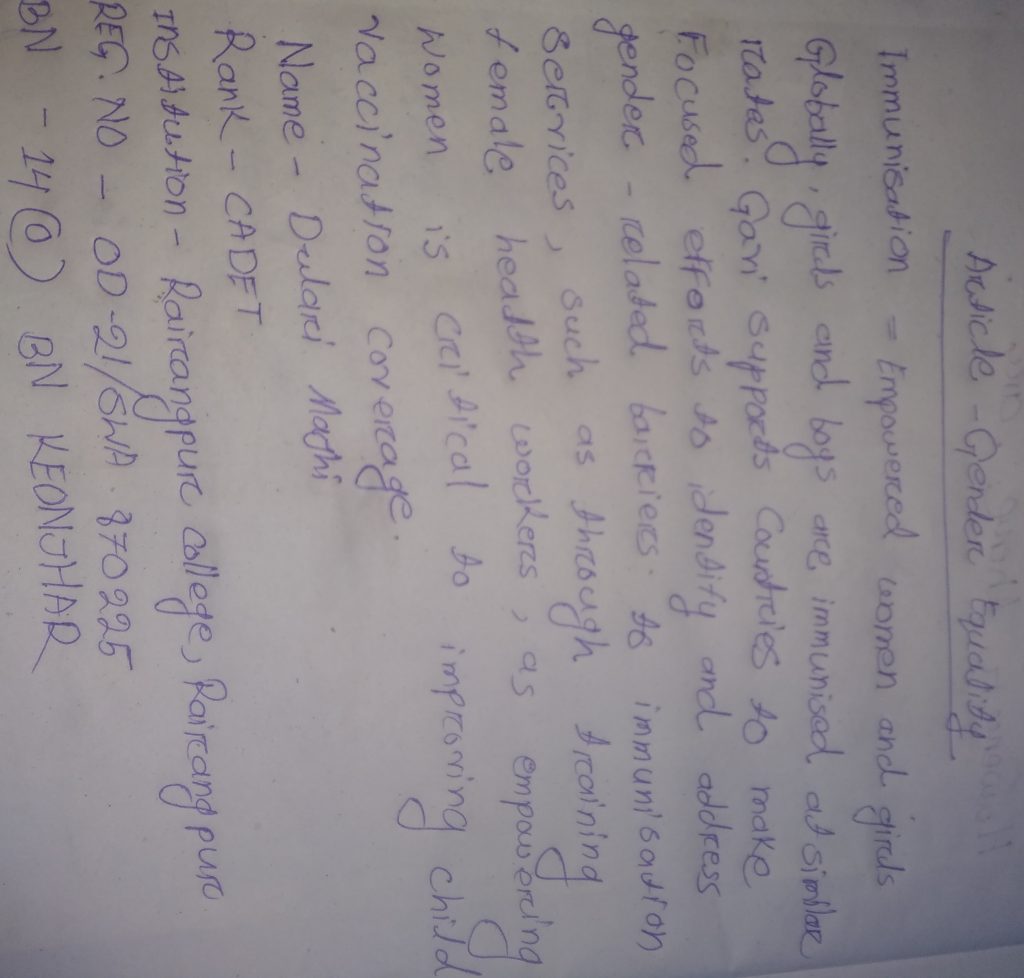 Article - Gender Equality
Immunisation = Empowered women and girls
Globally, girls and boys are immunised at similar
rates. Gavi supports Countries to make
Focused efforts to identity and address
gender - related barriers to immunisation
Services, such as through training
female health workers, as empowering
women is critical to improving child
vaccination coverage.
Name - Dulari Majhi
Rank - CADET
Institution - Rairangpur college, Rairangpur
REG. NO - OD-21/SWA 870225
BN - 14 (O) BN KEONJHAR